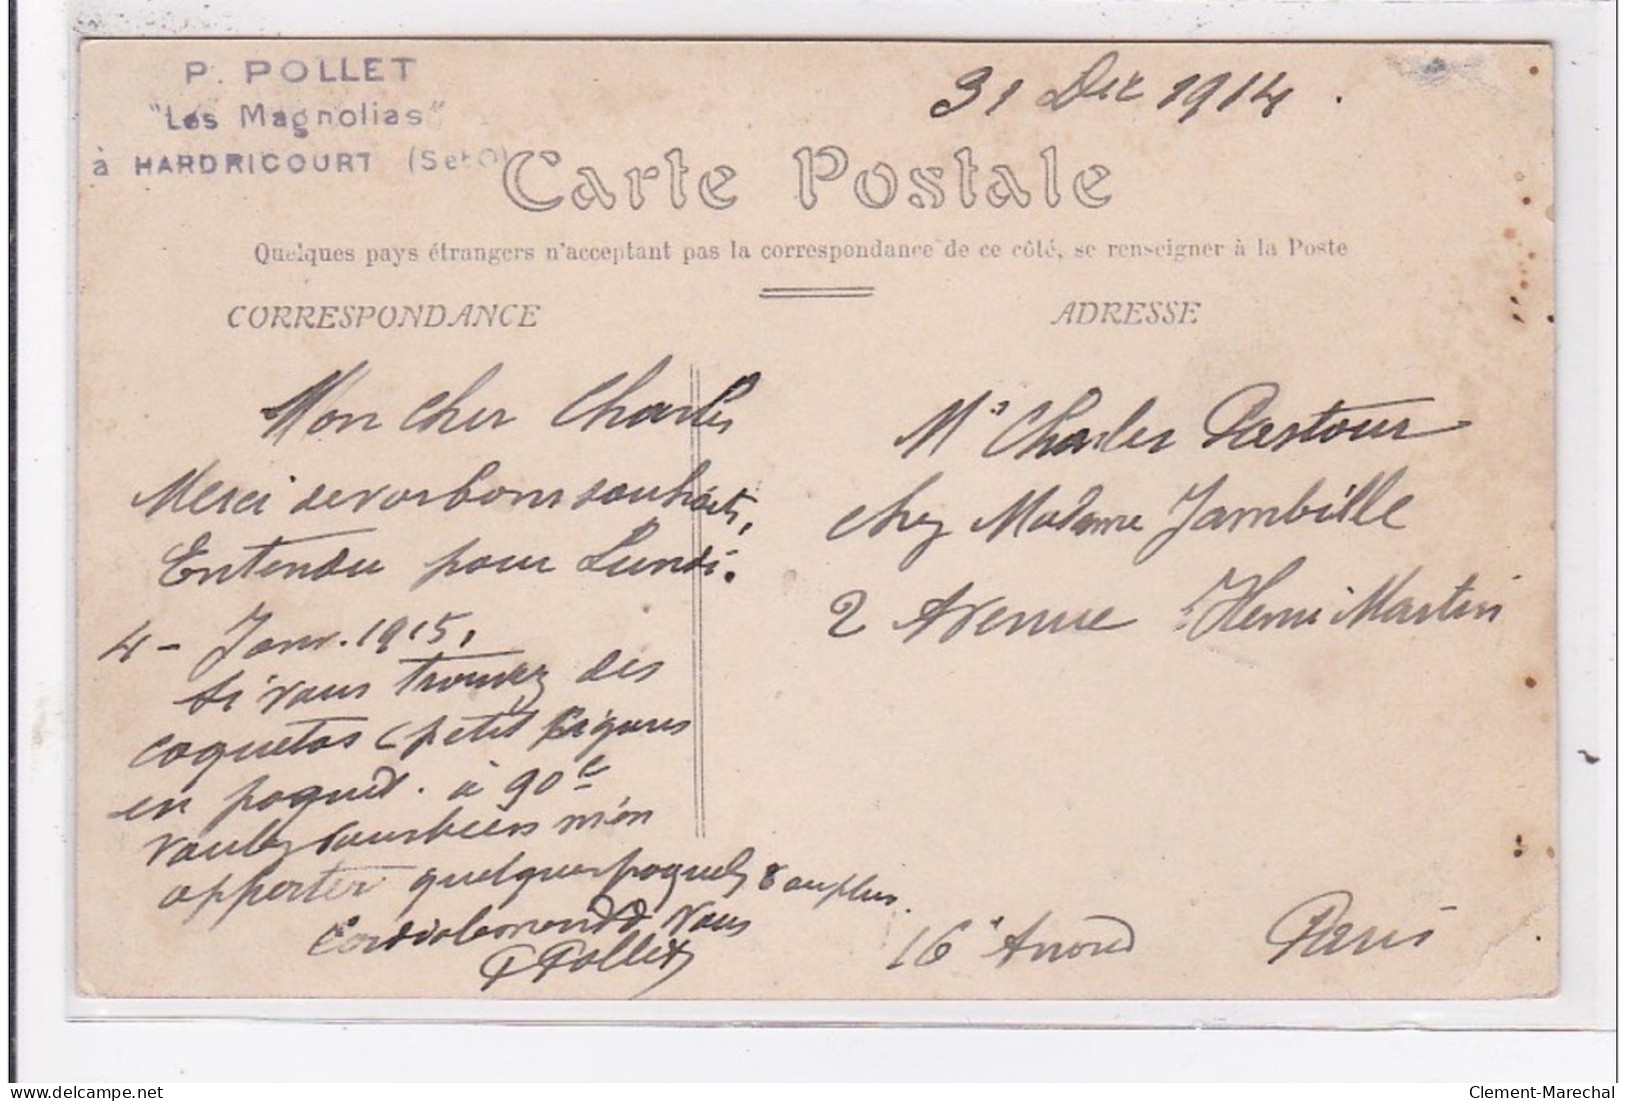 P. POLLET
"Les Magnolias"
à HARDRICOURT (S et O)
31 Dec 1914.
Carte Postale
Quelques pays étrangers n'acceptant pas la correspondance de ce côté, se renseigner à la Poste
CORRESPONDANCE
Mon cher Charles
Merci de vos bons souhaits,
Entendu pour Lundi.
4 - Janv. 1915,
si vous trouvez des
coquetas (petit cigares
en paquet. à 90c
voulez vous bien m'en
apporter quelques paquets 8 au plus.
Cordialement à vous
P Pollet
ADRESSE
Mr Charles Pastour
chez Madame Jambille
2 Avenue Henri Martin
16e Arrond Paris
Delcampe.net
Clement-Marechal